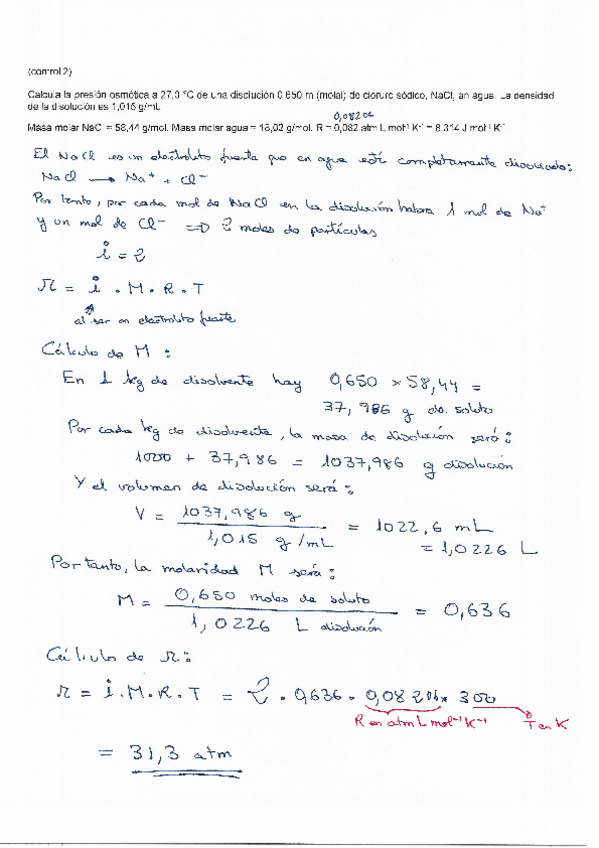 (control 2)
Calcula la presión osmótica a 27,0 °C de una disolución 0.650 m (molal) de cloruro sódico, NaCl, an agua. La densidad
de la disolución es 1,015 g/mL
0,08206
Masa molar NaCl = 58,44 g/mol. Masa molar agua = 18,02 g/mol. R = 0,082 atm L mol⁻¹ K⁻¹ = 8.314 J mol⁻¹ K⁻¹
El NaCl es un electrolito fuerte que en agua está completamente disociado:
NaCl → Na⁺ + Cl⁻
Por tanto, por cada mol de NaCl en la disolución habra 1 mol de Na⁺
y un mol de Cl⁻ ⇒ 2 moles de partículas
i = 2
π = i · M · R · T
al ser un electrolito fuerte
Cálculo de M :
En 1 kg de disolvente hay 0,650 × 58,44 =
37,986 g de soluto
Por cada kg de disolvente, la masa de disolución será:
1000 + 37,986 = 1037,986 g disolución
Y el volumen de disolución será:
V = 1037,986 g / 1,015 g/mL = 1022,6 mL
= 1,0226 L
Por tanto, la molaridad M será:
M = 0,650 moles de soluto / 1,0226 L disolución = 0,636
Cálculo de π:
π = i·M·R·T = 2 · 0,636 · 0,08206 · 300
R en atm L mol⁻¹ K⁻¹ T en K
= 31,3 atm